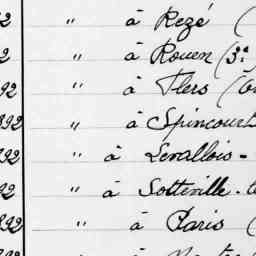 2 " à Rezé (
2 " à Rouen (3e
92 " à Flers (
892 " à Spincourt
92 " à Levallois-
92 " à Sotteville-
892 " à Paris (